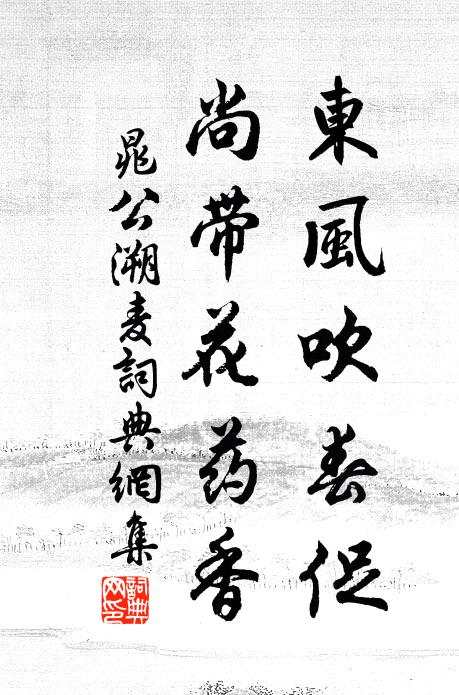 東風吹春促
尚带花药香
晁公溯麦詞典網集
詞典